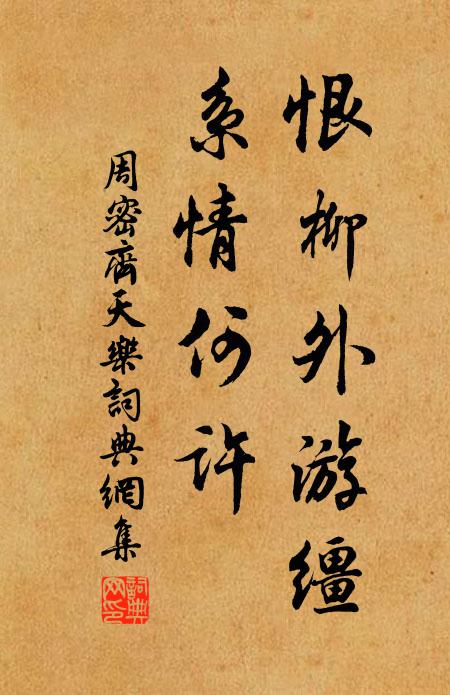 恨柳外游缰
系情何许
周密齊天樂詞典網集
詞典網印